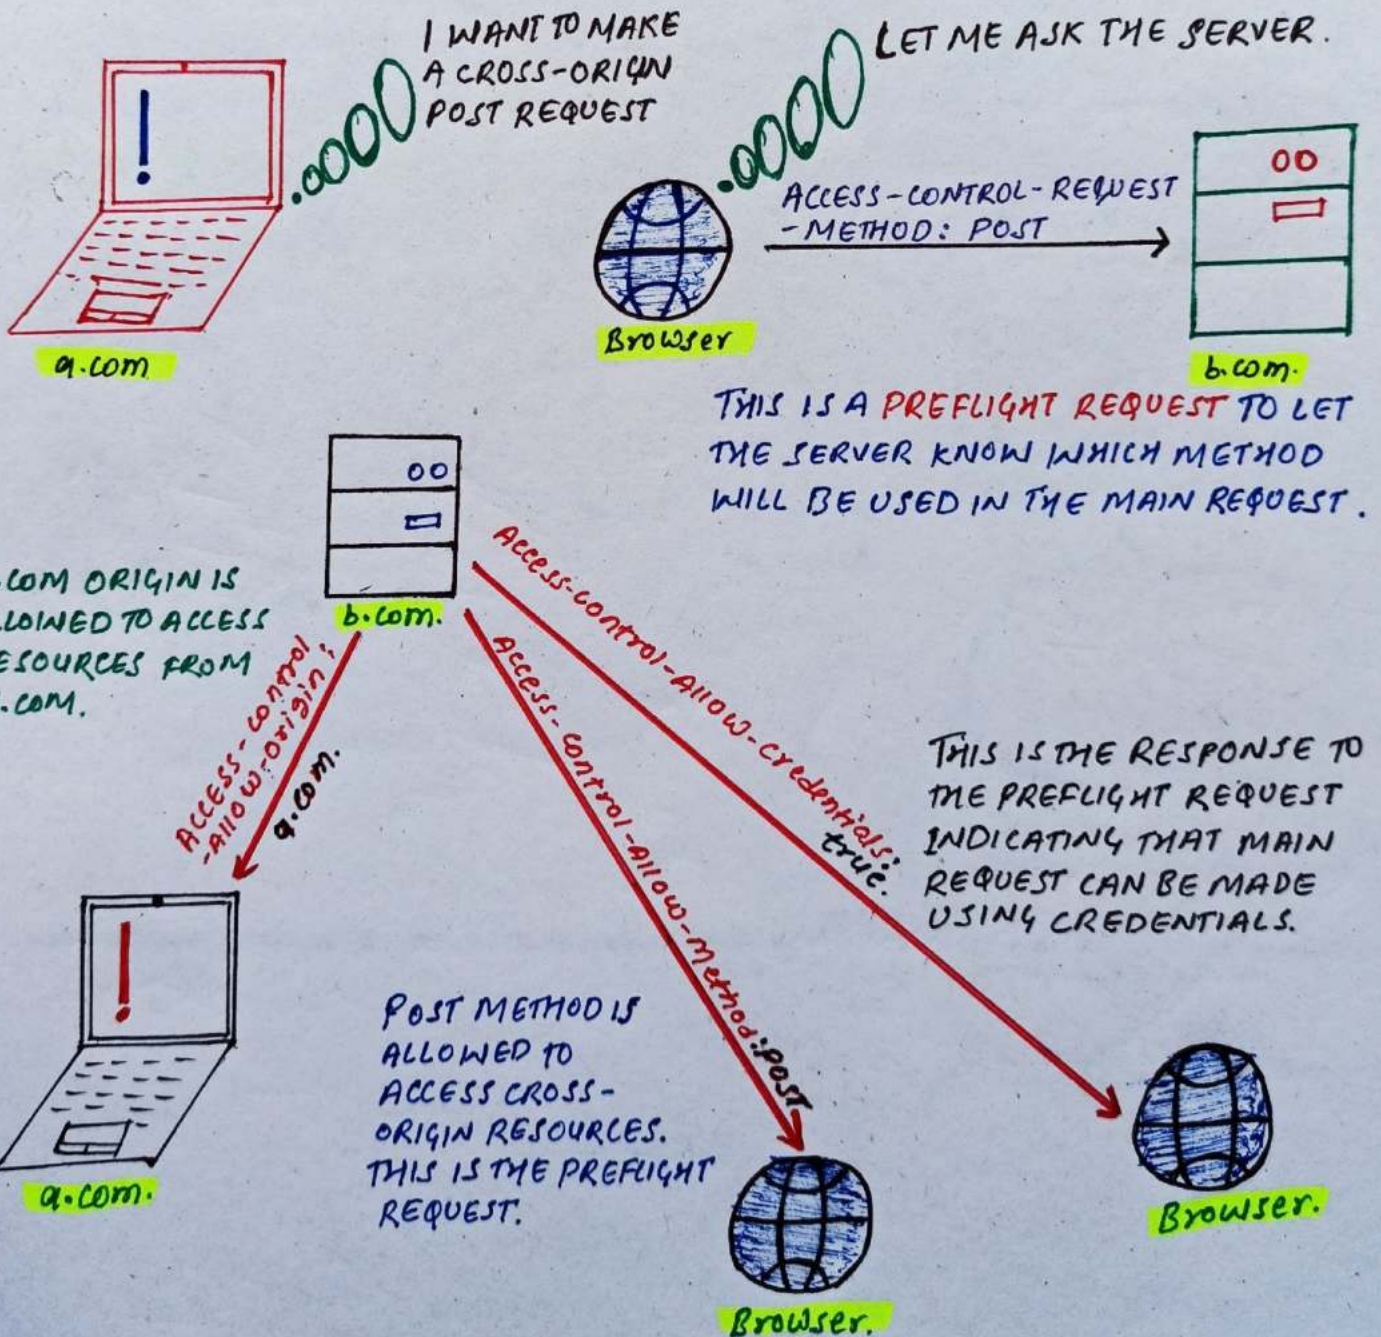 I WANT TO MAKE
A CROSS-ORIGIN
POST REQUEST
LET ME ASK THE SERVER.
ACCESS-CONTROL-REQUEST
-METHOD: POST
a.com
Browser
b.com.
THIS IS A PREFLIGHT REQUEST TO LET
THE SERVER KNOW WHICH METHOD
WILL BE USED IN THE MAIN REQUEST.
.COM ORIGIN IS
LLOWED TO ACCESS
ESOURCES FROM
.COM.
b.com.
ACCESS-control
-Allow-origin:
a.com.
Access-control-Allow-Method:POST
Access-control-Allow-credentials:
true.
THIS IS THE RESPONSE TO
THE PREFLIGHT REQUEST
INDICATING THAT MAIN
REQUEST CAN BE MADE
USING CREDENTIALS.
POST METHOD IS
ALLOWED TO
ACCESS CROSS-
ORIGIN RESOURCES.
THIS IS THE PREFLIGHT
REQUEST.
a.com.
Browser.
Browser.